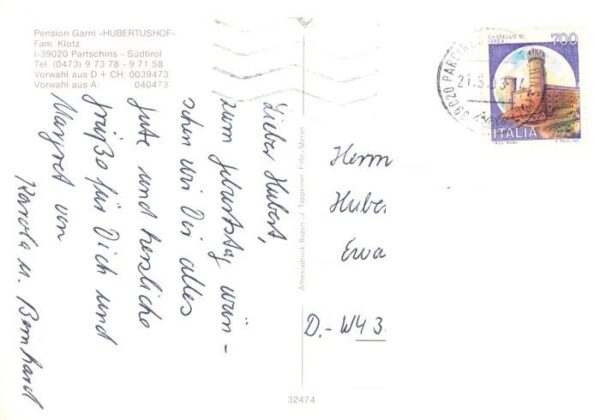 Pension Garni »HUBERTUSHOF«
Fam. Klotz
I-39020 Partschins - Südtirol
Tel. (0473) 9 73 78 - 9 71 58
Vorwahl aus D + CH: 0039473
Vorwahl aus A: 040473
Lieber Hubert,
zum Geburtstag wün-
schen wir Dir alles
Gute und herzliche
Grüße für Dich und
Margret von
Karola u. Bernhard
Athesiadruck Bozen
32474
CASTELLO DI
700
ITALIA
39020
21.5.
Herrn
Huber
Ewa
D.-W43